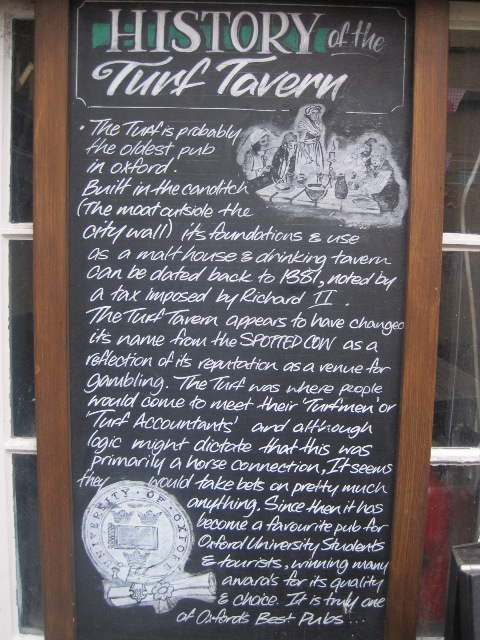 HISTORY of the
Turf Tavern
• The Turf is probably
the oldest pub
in oxford.
Built in the canditch
(The moat outside the
city wall) its foundations & use
as a malt house & drinking tavern
can be dated back to 1381, noted by
a tax imposed by Richard II.
The Turf Tavern appears to have changed
its name from the SPOTTED COW as a
reflection of its reputation as a venue for
gambling. The Turf was where people
would come to meet their 'Turfmen' or
'Turf Accountants' and although
logic might dictate that this was
primarily a horse connection, It seems
they would take bets on pretty much
anything. Since then it has
become a favourite pub for
Oxford University Students
& tourists, winning many
awards for its quality
& choice. It is truly one
of Oxfords Best Pubs...
UNIVERSITY · OF · OXFORD